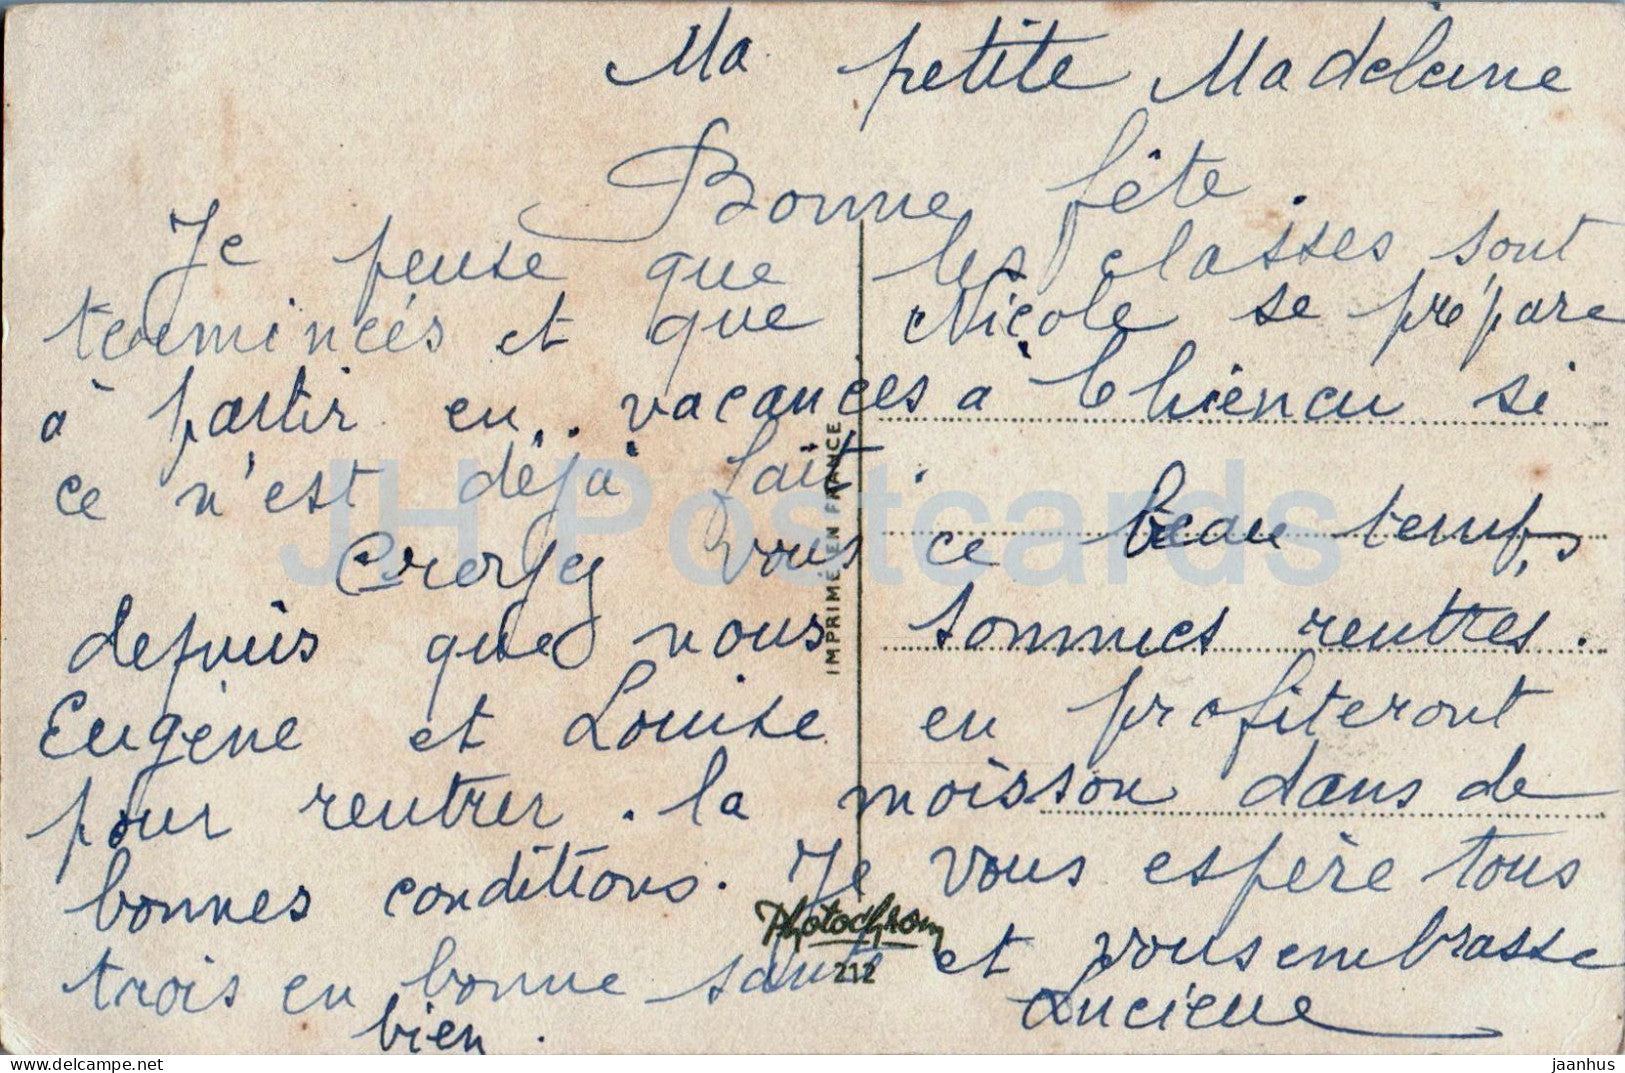 Ma petite Madeleine
Bonne fête.
Je pense que les classes sont
terminées et que Nicole se prépare
à partir en vacances à si
ce n'est déjà fait.
vous ce beau temps
depuis que nous sommes rentrés.
Eugène et Louise en profiteront
pour rentrer la moisson dans de
bonnes conditions. Je vous espère tous
trois en bonne santé et vous embrasse
bien.
Lucienne
IMPRIMÉ EN FRANCE
Photochrom
212
JH Postcards
delcampe.net
jaanhus